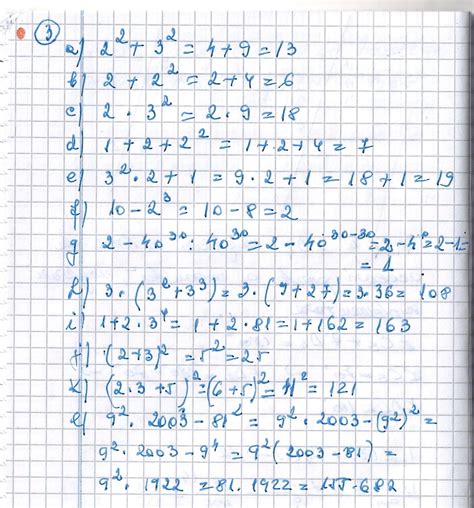 ③
a) 2² + 3² = 4 + 9 = 13
b) 2 + 2² = 2 + 4 = 6
c) 2 · 3² = 2 · 9 = 18
d) 1 + 2 + 2² = 1 + 2 + 4 = 7
e) 3² · 2 + 1 = 9 · 2 + 1 = 18 + 1 = 19
f) 10 - 2³ = 10 - 8 = 2
g) 2 - 40³⁰ : 40³⁰ = 2 - 40³⁰⁻³⁰ = 2 - 4⁰ = 2 - 1 =
= 1
h) 3 · (3² + 3³) = 3 · (9 + 27) = 3 · 36 = 108
i) 1 + 2 · 3⁴ = 1 + 2 · 81 = 1 + 162 = 163
j) (2 + 3)² = 5² = 25
k) (2 · 3 + 5)² = (6 + 5)² = 11² = 121
l) 9² · 2003 - 81² = 9² · 2003 - (9²)² =
9² · 2003 - 9⁴ = 9² (2003 - 81) =
9² · 1922 = 81 · 1922 = 155.682